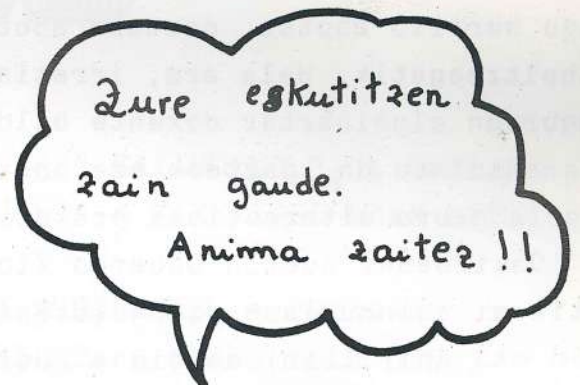 Zure eskutitzen
zain gaude.
Anima zaitez!!